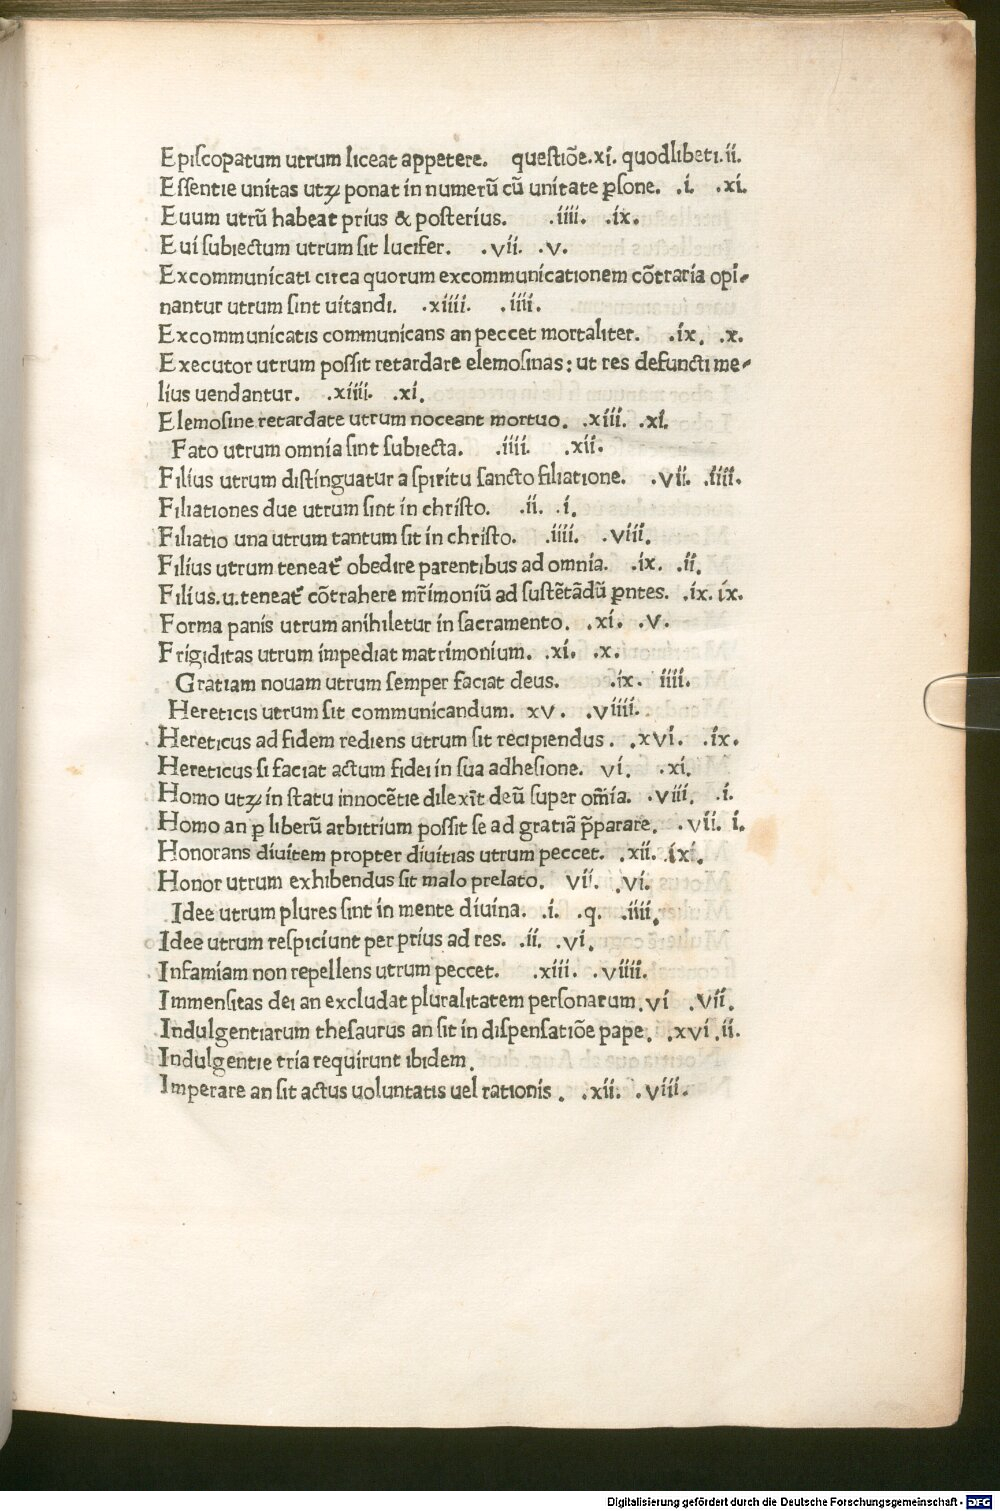 Episcopatum utrum liceat appetere. questiõe.xi. quodlibeti.ii.
Essentie unitas utꝫ ponat in numerũ cũ unitate ꝑsone. .i. .xi.
Euum utrũ habeat prius & posterius. .iiii. .ix.
Eui subiectum utrum sit lucifer. .vii. .v.
Excommunicati circa quorum excommunicationem cõtraria opi-
nantur utrum sint uitandi. .xiiii. .iiii.
Excommunicatis communicans an peccet mortaliter. .ix. .x.
Executor utrum possit retardare elemosinas: ut res defuncti me-
lius uendantur. .xiiii. .xi.
Elemosine retardate utrum noceant mortuo. .xiii. .xi.
Fato utrum omnia sint subiecta. .iiii. .xii.
Filius utrum distinguatur a spiritu sancto filiatione. .vii. .iiii.
Filiationes due utrum sint in christo. .ii. .i.
Filiatio una utrum tantum sit in christo. .iiii. .viii.
Filius utrum teneat᷑ obedire parentibus ad omnia. .ix. .ii.
Filius.u.teneat᷑ cõtrahere mr̃imoniũ ad sustẽtãdũ ꝑntes. .ix. ix.
Forma panis utrum anihiletur in sacramento. .xi. .v.
Frigiditas utrum impediat matrimonium. .xi. .x.
Gratiam nouam utrum semper faciat deus. .ix. iiii.
Hereticis utrum sit communicandum. xv. .viiii.
Hereticus ad fidem rediens utrum sit recipiendus. .xvi. .ix.
Hereticus si faciat actum fidei in sua adhesione. vi. .xi.
Homo utꝫ in statu innocẽtie dilexĩt deũ super om̃ia. .viii. .i.
Homo an ꝑ liberũ arbitrium possit se ad gratiã p̃parare. .vii. i.
Honorans diuitem propter diuitias utrum peccet. .xii. .ixi.
Honor utrum exhibendus sit malo prelato. vii. .vi.
Idee utrum plures sint in mente diuina. .i. .q. .iiii.
Idee utrum respiciunt per prius ad res. .ii. .vi.
Infamiam non repellens utrum peccet. .xiii. .viiii.
Immensitas dei an excludat pluralitatem personarum.vi .vii.
Indulgentiarum thesaurus an sit in dispensatiõe pape. .xvi.ii.
Indulgentie tria requirunt ibidem.
Imperare an sit actus uoluntatis uel rationis. .xii. .viii.
Digitalisierung gefördert durch die Deutsche Forschungsgemeinschaft - DFG